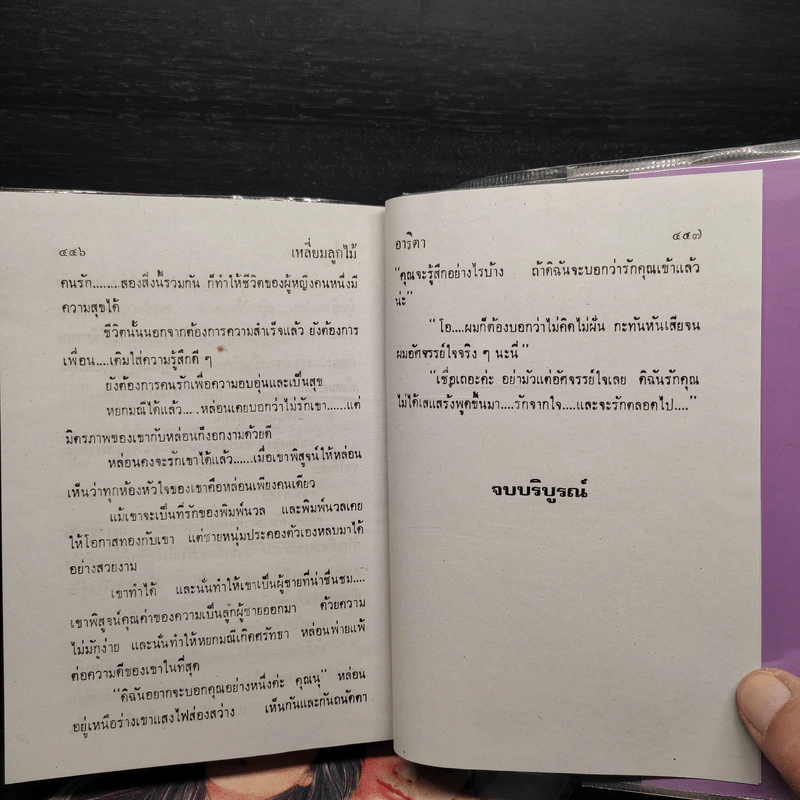 ๔๕๖ เหลี่ยมลูกไม้
คนรัก........สองสิ่งนี้รวมกัน ก็ทำให้ชีวิตของผู้หญิงคนหนึ่งมี
ความสุขได้
ชีวิตนั้นนอกจากต้องการความสำเร็จแล้ว ยังต้องการ
เพื่อน....เติมใส่ความรู้สึกดี ๆ
ยังต้องการคนรักเพื่อความอบอุ่นและเป็นสุข
หยกมณีได้แล้ว.....หล่อนเคยบอกว่าไม่รักเขา......แต่
มิตรภาพของเขากับหล่อนก็งอกงามด้วยดี
หล่อนคงจะรักเขาได้แล้ว......เมื่อเขาพิสูจน์ให้หล่อน
เห็นว่าทุกห้องหัวใจของเขาคือหล่อนเพียงคนเดียว
แม้เขาจะเป็นที่รักของพิมพ์นวล และพิมพ์นวลเคย
ให้โอกาสทองกับเขา แต่ชายหนุ่มประคองตัวเองหลบมาได้
อย่างสวยงาม
เขาทำได้ และนั่นทำให้เขาเป็นผู้ชายที่น่าชื่นชม....
เขาพิสูจน์คุณค่าของความเป็นลูกผู้ชายออกมา ด้วยความ
ไม่มักง่าย และนั่นทำให้หยกมณีเกิดศรัทธา หล่อนพ่ายแพ้
ต่อความดีของเขาในที่สุด
“ดิฉันอยากจะบอกคุณอย่างหนึ่งค่ะ คุณนุ” หล่อน
อยู่เหนือร่างเขาแสงไฟส่องสว่าง เห็นกันและกันถนัดตา
อาริตา ๔๕๗
“คุณจะรู้สึกอย่างไรบ้าง ถ้าดิฉันจะบอกว่ารักคุณเข้าแล้ว
น่ะ”
“โอ....ผมก็ต้องบอกว่าไม่คิดไม่ฝัน กะทันหันเสียจน
ผมอัศจรรย์ใจจริง ๆ นะนี่”
“เชื่อเถอะค่ะ อย่ามัวแต่อัศจรรย์ใจเลย ดิฉันรักคุณ
ไม่ได้เสแสร้งพูดขึ้นมา....รักจากใจ....และจะรักตลอดไป....”
จบบริบูรณ์